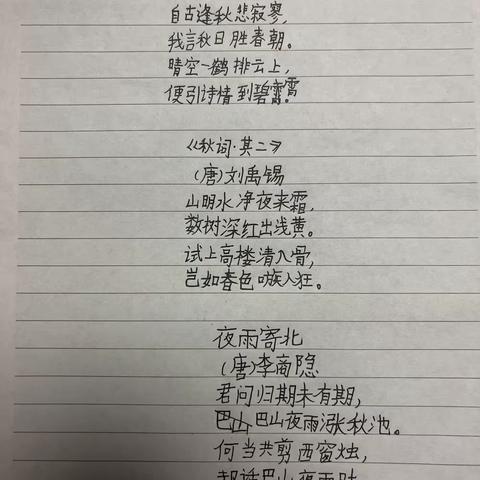 自古逢秋悲寂寥，
我言秋日胜春朝。
晴空一鹤排云上，
便引诗情到碧霄。
《秋词·其二》
（唐）刘禹锡
山明水净夜来霜，
数树深红出浅黄。
试上高楼清入骨，
岂如春色嗾人狂。
夜雨寄北
（唐）李商隐
君问归期未有期，
巴山巴山夜雨涨秋池。
何当共剪西窗烛，
却话巴山夜雨时